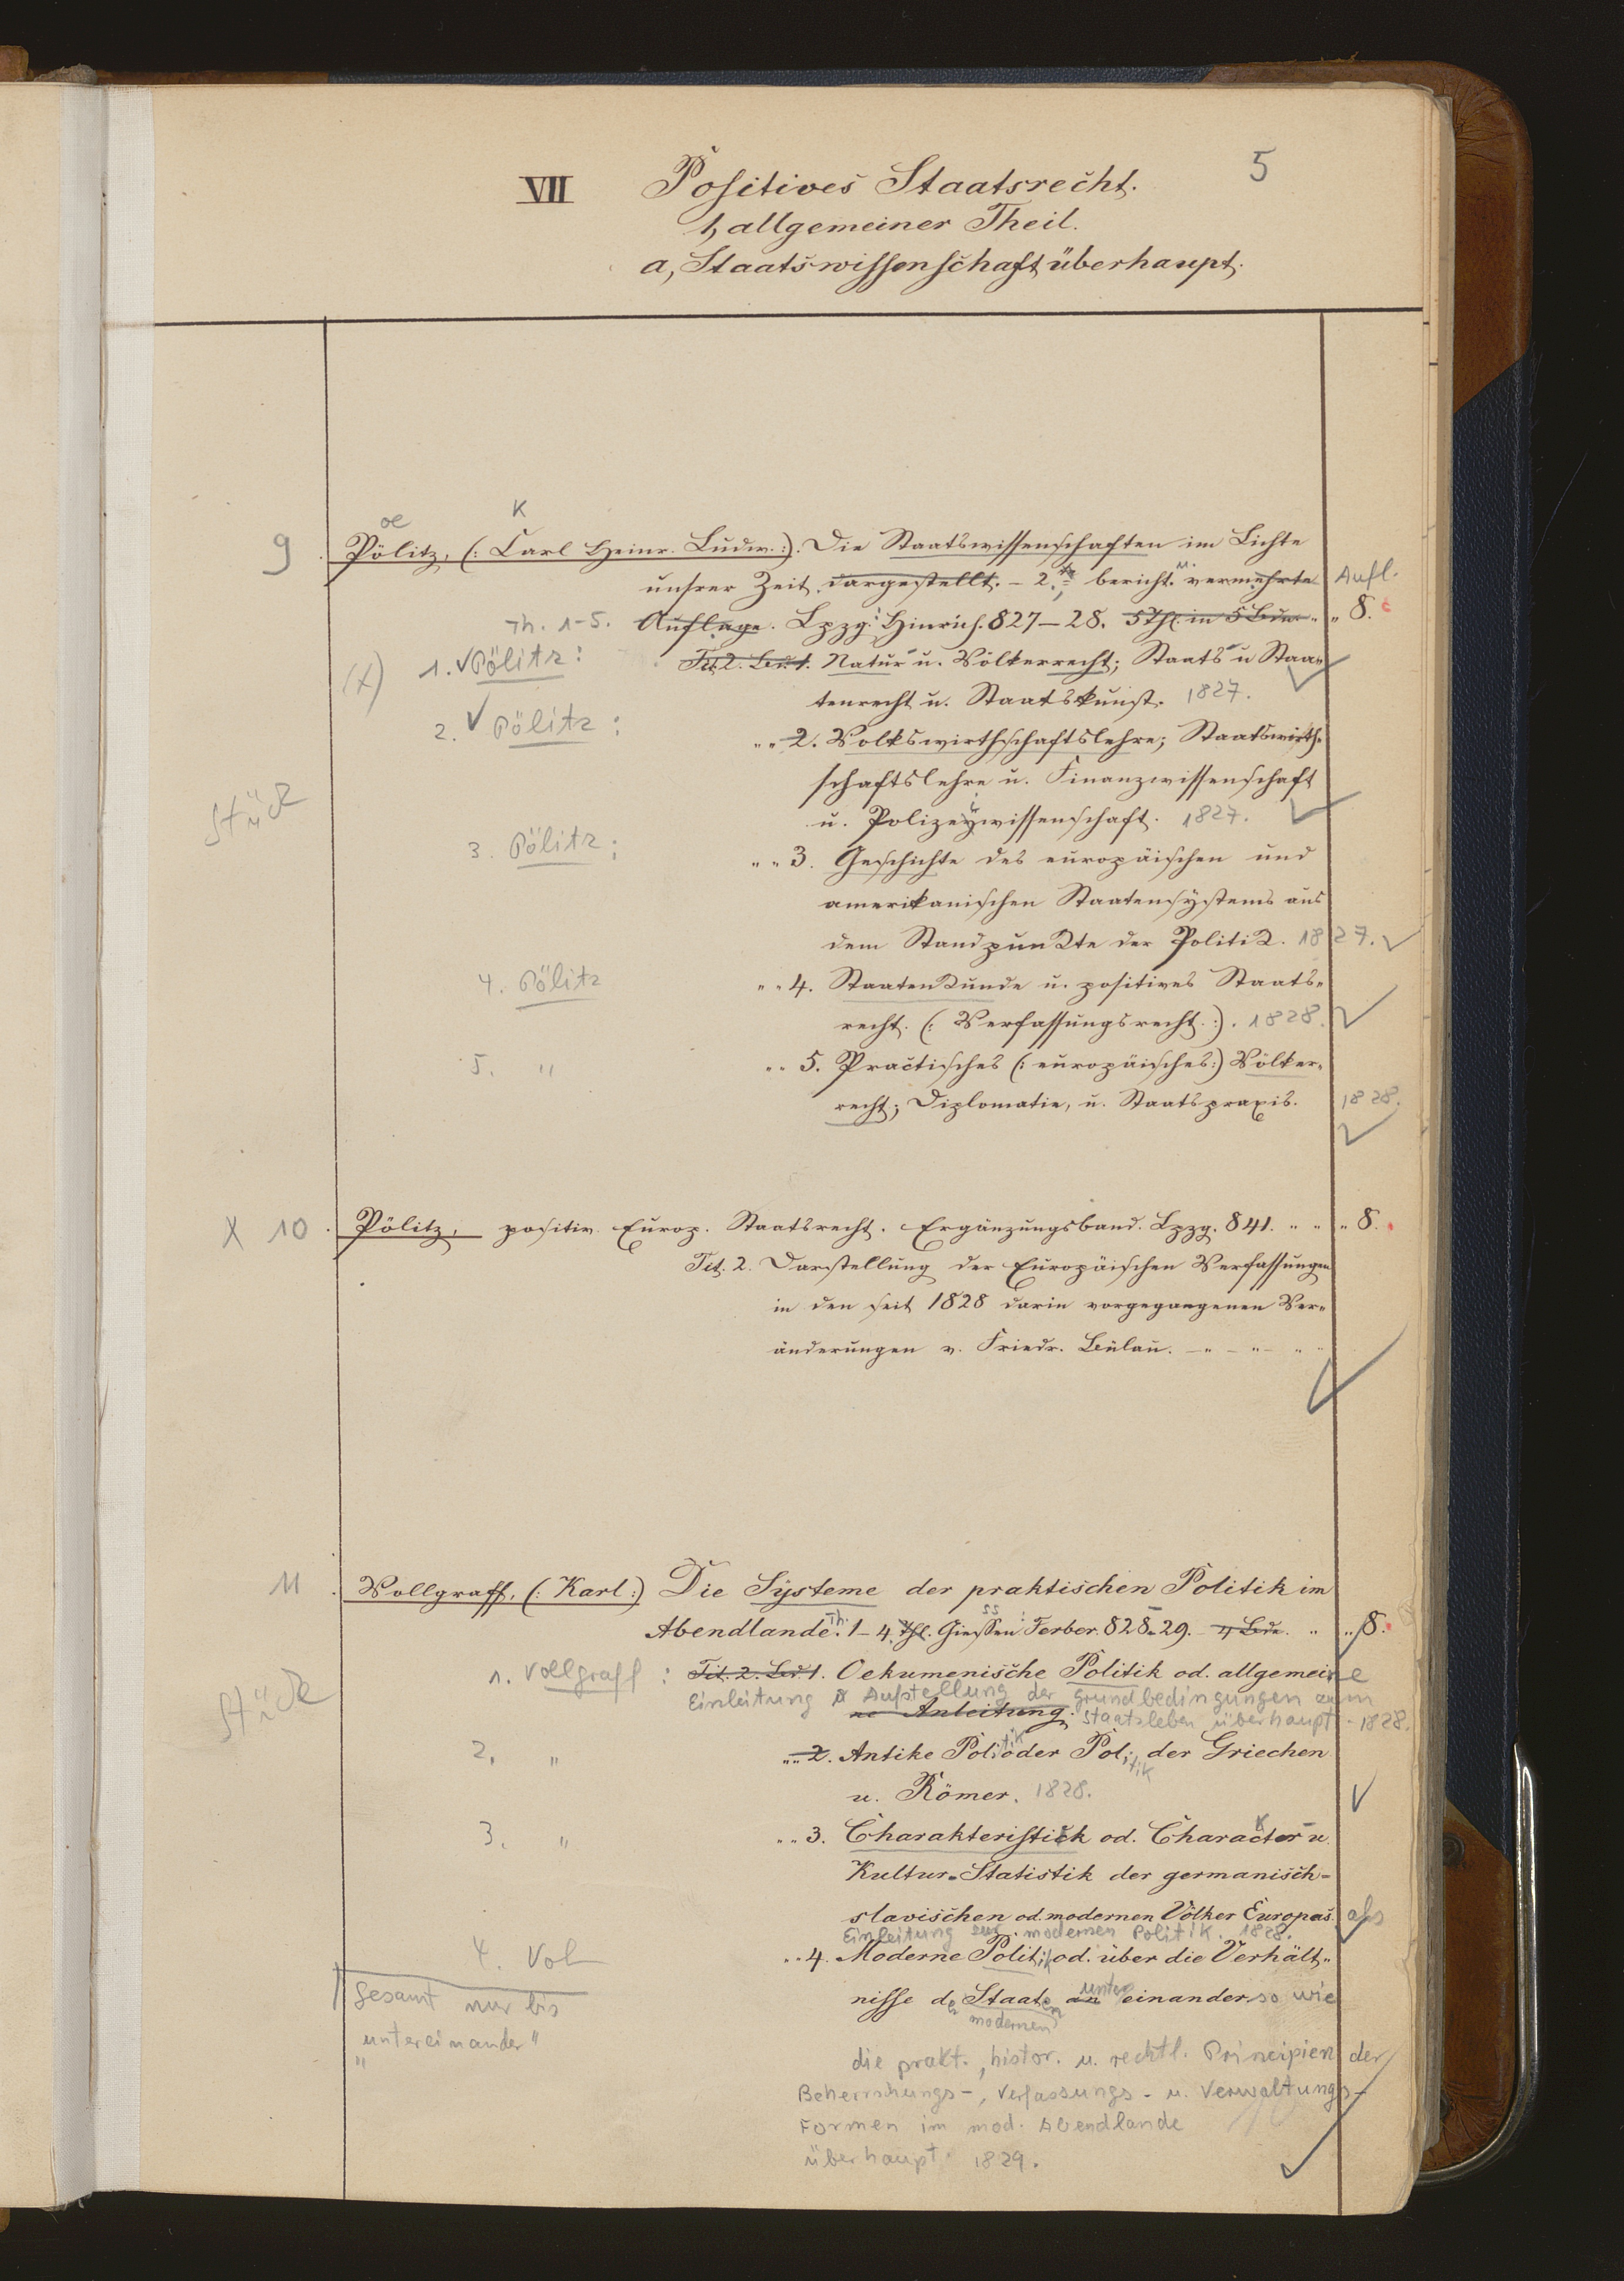 5
VII Positives Staatsrecht.
1, allgemeiner Theil.
a, Staatswissenschaft überhaupt.
oe K
9 Pölitz, (: Carl Heinr. Ludw. :). Die Staatswissenschaften im Lichte
unsrer Zeit dargestellt. – 2te, bericht. u. vermehrte Aufl.
Th. 1-5. Auflage. Lpzg: Hinrich. 827–28. 5 Thl. in 5 Bden. „ „ 8.
(X) 1. Pölitz: Tit. 2. Bd. 1. Natur- u. Völkerrecht; Staats- u Staa„
tenrecht u. Staatskunst. 1827.
2. Pölitz: „ „ 2. Volkswirthschaftslehre; Staatswirth„
schaftslehre u. Finanzwissenschaft
Stück u. Polizeywissenschaft. 1827.
3. Pölitz: „ „ 3. Geschichte des europäischen und
amerikanischen Staatensystems aus
dem Standpunkte der Politik. 1827.
4. Pölitz „ „ 4. Staatenkunde u. positives Staats„
recht. (: Verfassungsrecht. :). 1828.
5. „ „ „ 5. Practisches (: europäisches :) Völker„
recht; Diplomatie, u. Staatspraxis. 1828.
X 10. Pölitz, positiv. Europ. Staatsrecht. Ergänzungsband. Lpzg. 841. „ „ „ 8.
Tit. 2. Darstellung der Europäischen Verfassungen
in den seit 1828 darin vorgegangenen Ver„
änderungen v. Friedr. Bülau. – „ – „ – „ „
11. Vollgraff, (: Karl :) Die Systeme der praktischen Politik im
Abendlande. Th. 1–4. Thl. Giessen: Ferber. 828-29. 4 Bde. „ „ 8.
1. Vollgraff: Tit. 2. Bd 1. Oekumenische Politik od. allgemeine
Einleitung u. Aufstellung der Grundbedingungen zum
Stück ne Anleitung. Staatsleben überhaupt. - 1828.
2. „ „ „ 2. Antike Politik oder Politik der Griechen
u. Römer. 1828.
3. „ „ „ 3. Charakteristick od. Character- u.
Kultur-Statistik der germanisch-
slavischen od. modernen Völker Europas. als
Einleitung zur modernen Politik. 1828.
4. Vol „ „ 4. Moderne Politik od. über die Verhält„
Gesamt nur bis nisse der modernen Staaten an unter einander so wie
„untereinander“
die prakt., histor. u. rechtl. Principien der
Beherrschungs-, Verfassungs- u. Verwaltungs-
Formen im mod. Abendlande
überhaupt. 1829.